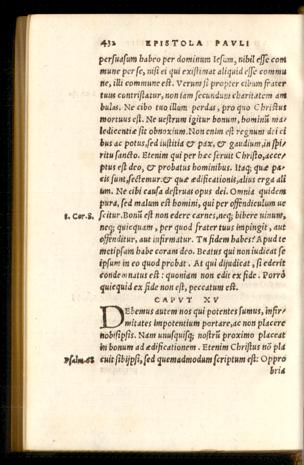 432 EPISTOLA PAVLI
persuasum habeo per dominum Iesum, nihil esse com
mune per se, nisi ei qui existimat aliquid esse commu
ne, illi commune est. Verum si propter cibum frater
tuus contristatur, non iam secundum charitatem am
bulas. Ne cibo tuo illum perdas, pro quo Christus
mortuus est. Ne uestrum igitur bonum, hominū ma
ledicentiæ sit obnoxium. Non enim est regnum dei ci
bus ac potus, sed iustitia & pax, & gaudium, in spi
ritu sancto. Etenim qui per hæc seruit Christo, acce
ptus est deo, & probatus hominibus. Itaq; quæ pa
cis sunt, sectemur, & quæ ædificationis, alius erga ali
um. Ne cibi causa destruas opus dei. Omnia quidem
pura, sed malum est homini, qui per offendiculum ue
1. Cor. 8. scitur. Bonū est non edere carnes, neq; bibere uinum,
neq; quicquam, per quod frater tuus impingit, aut
offenditur, aut infirmatur. Tu fidem habes? Apud te
metipsum habe coram deo. Beatus qui non iudicat se
ipsum in eo quod probat. At qui dijudicat, si ederit
condemnatus est: quoniam non edit ex fide. Porrò
quicquid ex fide non est, peccatum est.
CAPVT XV
DEbemus autem nos qui potentes sumus, infir
mitates impotentium portare, ac non placere
nobisipsis. Nam unusquisq; nostrū proximo placeat
in bonum ad ædificationem. Etenim Christus nō pla
Psalm. 68 cuit sibijpsi, sed quemadmodum scriptum est: Oppro
bria